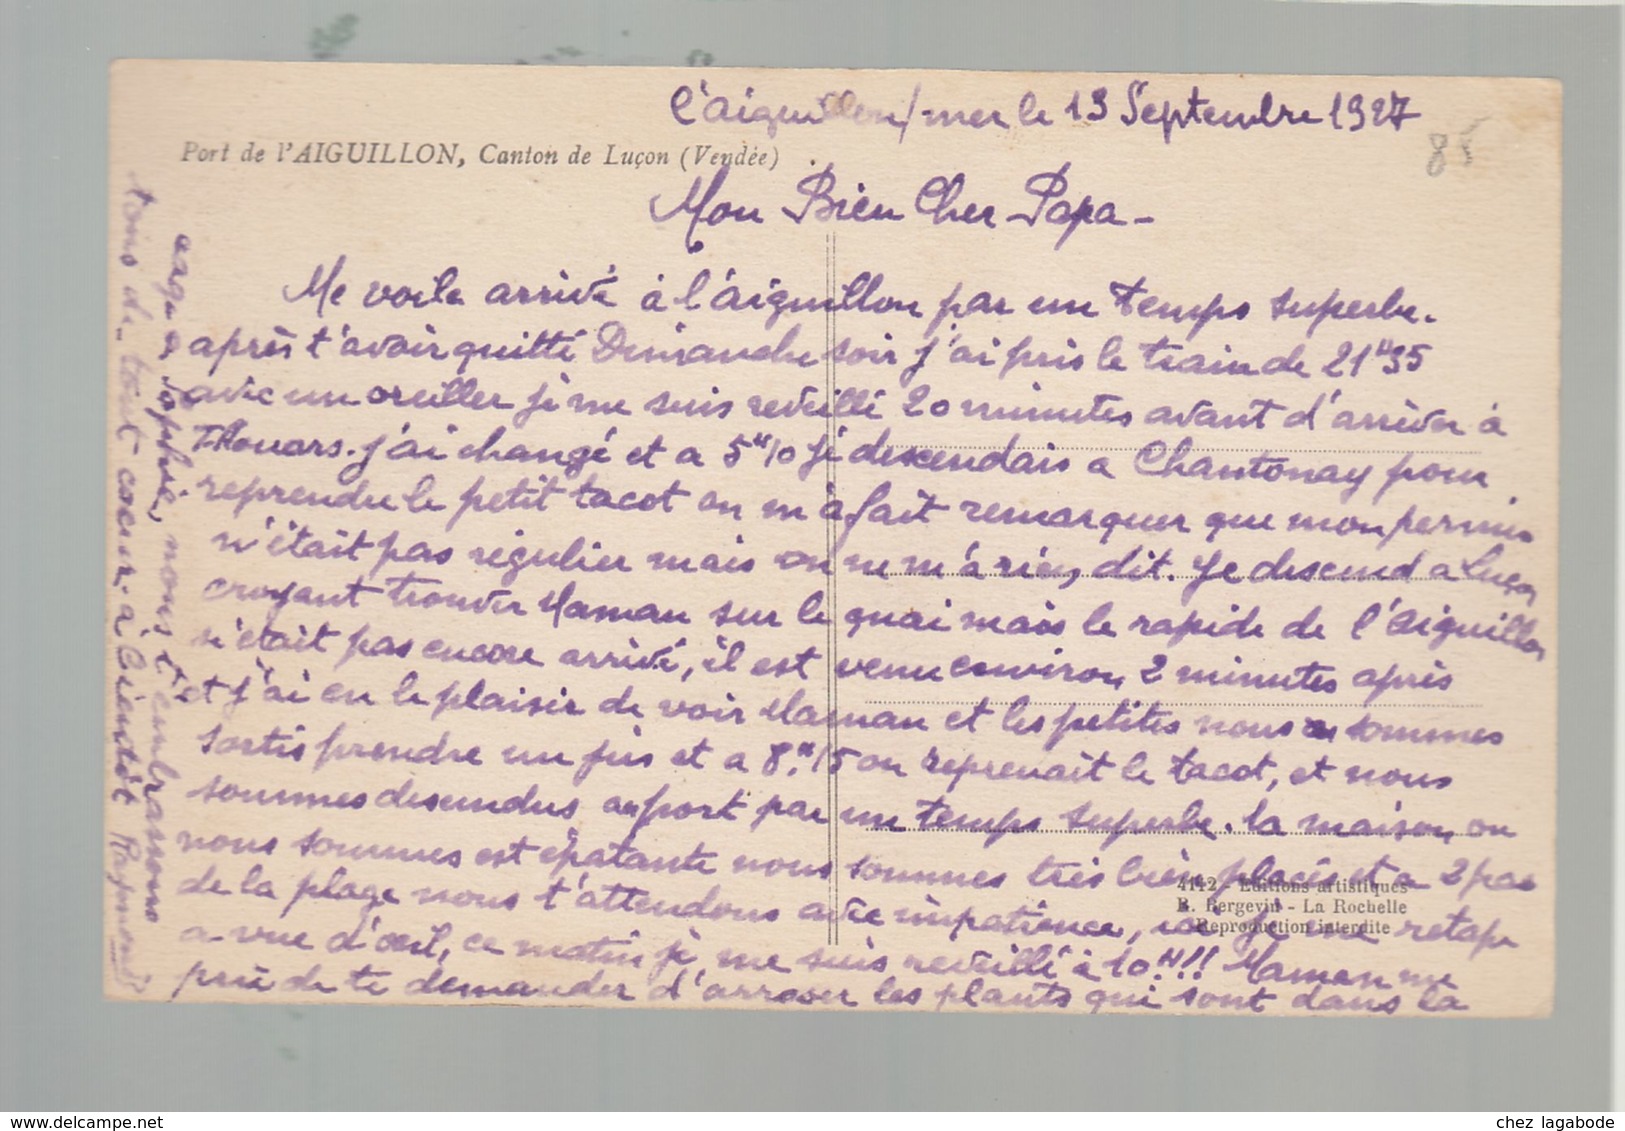 l'Aiguillon/mer le 13 Septembre 1927
85
Port de l'AIGUILLON, Canton de Luçon (Vendée)
Mon Bien Cher Papa -
Me voila arrivé à l'aiguillon par un temps superbe.
après t'avoir quitté Dimanche soir j'ai pris le train de 21H35
avec un oreiller je me suis reveillé 20 minutes avant d'arriver à
Thouars. j'ai changé et a 5H10 je descendais a Chantonay pour
reprendre le petit tacot on m'a fait remarquer que mon permis
n'était pas régulier mais on ne m'a rien dit. je descend a Luçon
croyant trouver Maman sur le quai mais le rapide de l'Aiguillon
n'était pas encore arrivé, il est venu environ 2 minutes après
et j'ai eu le plaisir de voir Maman et les petites nous sommes
sortis prendre un jus et a 8H15 on reprenait le tacot, et nous
sommes descendus au port par un temps superbe. la maison ou
nous sommes est épatante nous sommes très bien placés et a 2 pas
de la plage nous t'attendons avec impatience, ici je me retape
a vue d'oeil, ce matin je me suis reveillé à 10H!! Maman me
prie de te demander d'arroser les plants qui sont dans la
4142 - Editions artistiques
R. Bergevin - La Rochelle
Reproduction interdite
a Sophie, nous t'embrassons
tous de tout coeur. à bientôt Raymond
chez lagabode
www.delcampe.net